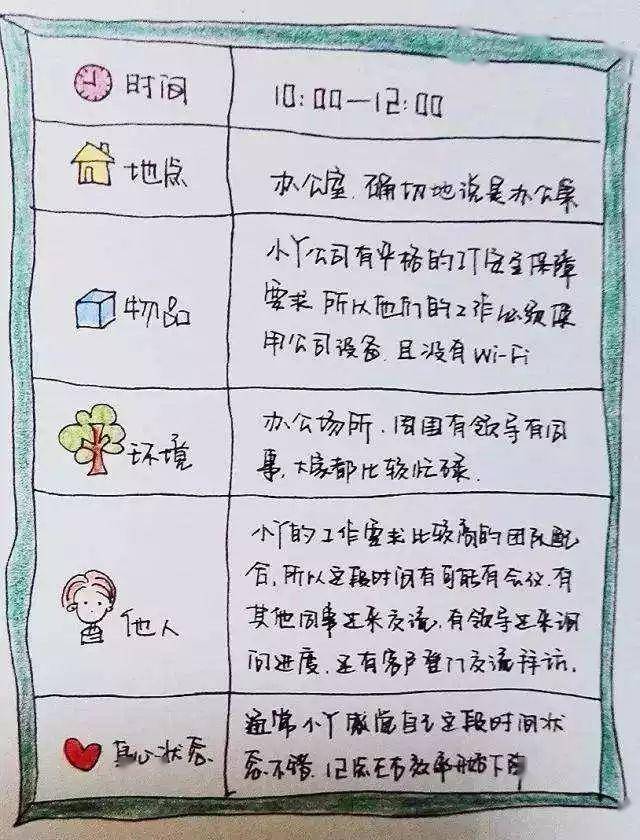 时间
10:00—12:00
地点
办公室,确切地说是办公桌
物品
小丫公司有严格的IT安全保障
要求 所以他们的工作必须使
用公司设备,且没有Wi-Fi
环境
办公场所,周围有领导有同
事,大家都比较忙碌.
他人
小丫的工作要求比较高的团队配
合,所以这段时间有可能有会议,有
其他同事过来交流,有领导过来询
问进度,还有客户登门交流拜访.
身心状态
通常小丫感觉自己这段时间状
态不错,12点左右效率开始下降